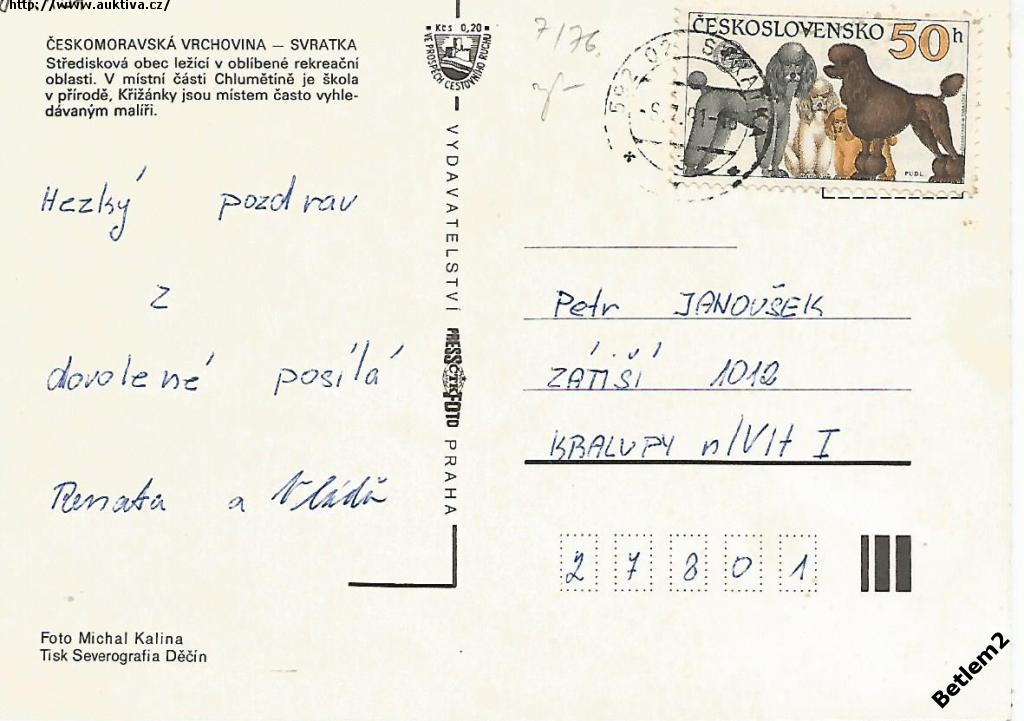 http://www.auktiva.cz/
ČESKOMORAVSKÁ VRCHOVINA – SVRATKA
Středisková obec ležící v oblíbené rekreační
oblasti. V místní části Chlumětíně je škola
v přírodě, Křižánky jsou místem často vyhle-
dávaným malíři.
Hezký pozdrav
z
dovolené posílá
Renata a Vláďa
Foto Michal Kalina
Tisk Severografia Děčín
Kčs 0,20
VE PROSPĚCH CESTOVNÍHO RUCHU
VYDAVATELSTVÍ PRESSFOTO PRAHA
ČTK
7/76
ČESKOSLOVENSKO 50h
PUDL
Petr JANOUŠEK
ZÁTIŠÍ 1012
KRALUPY n/Vlt I
27801
Betlem2